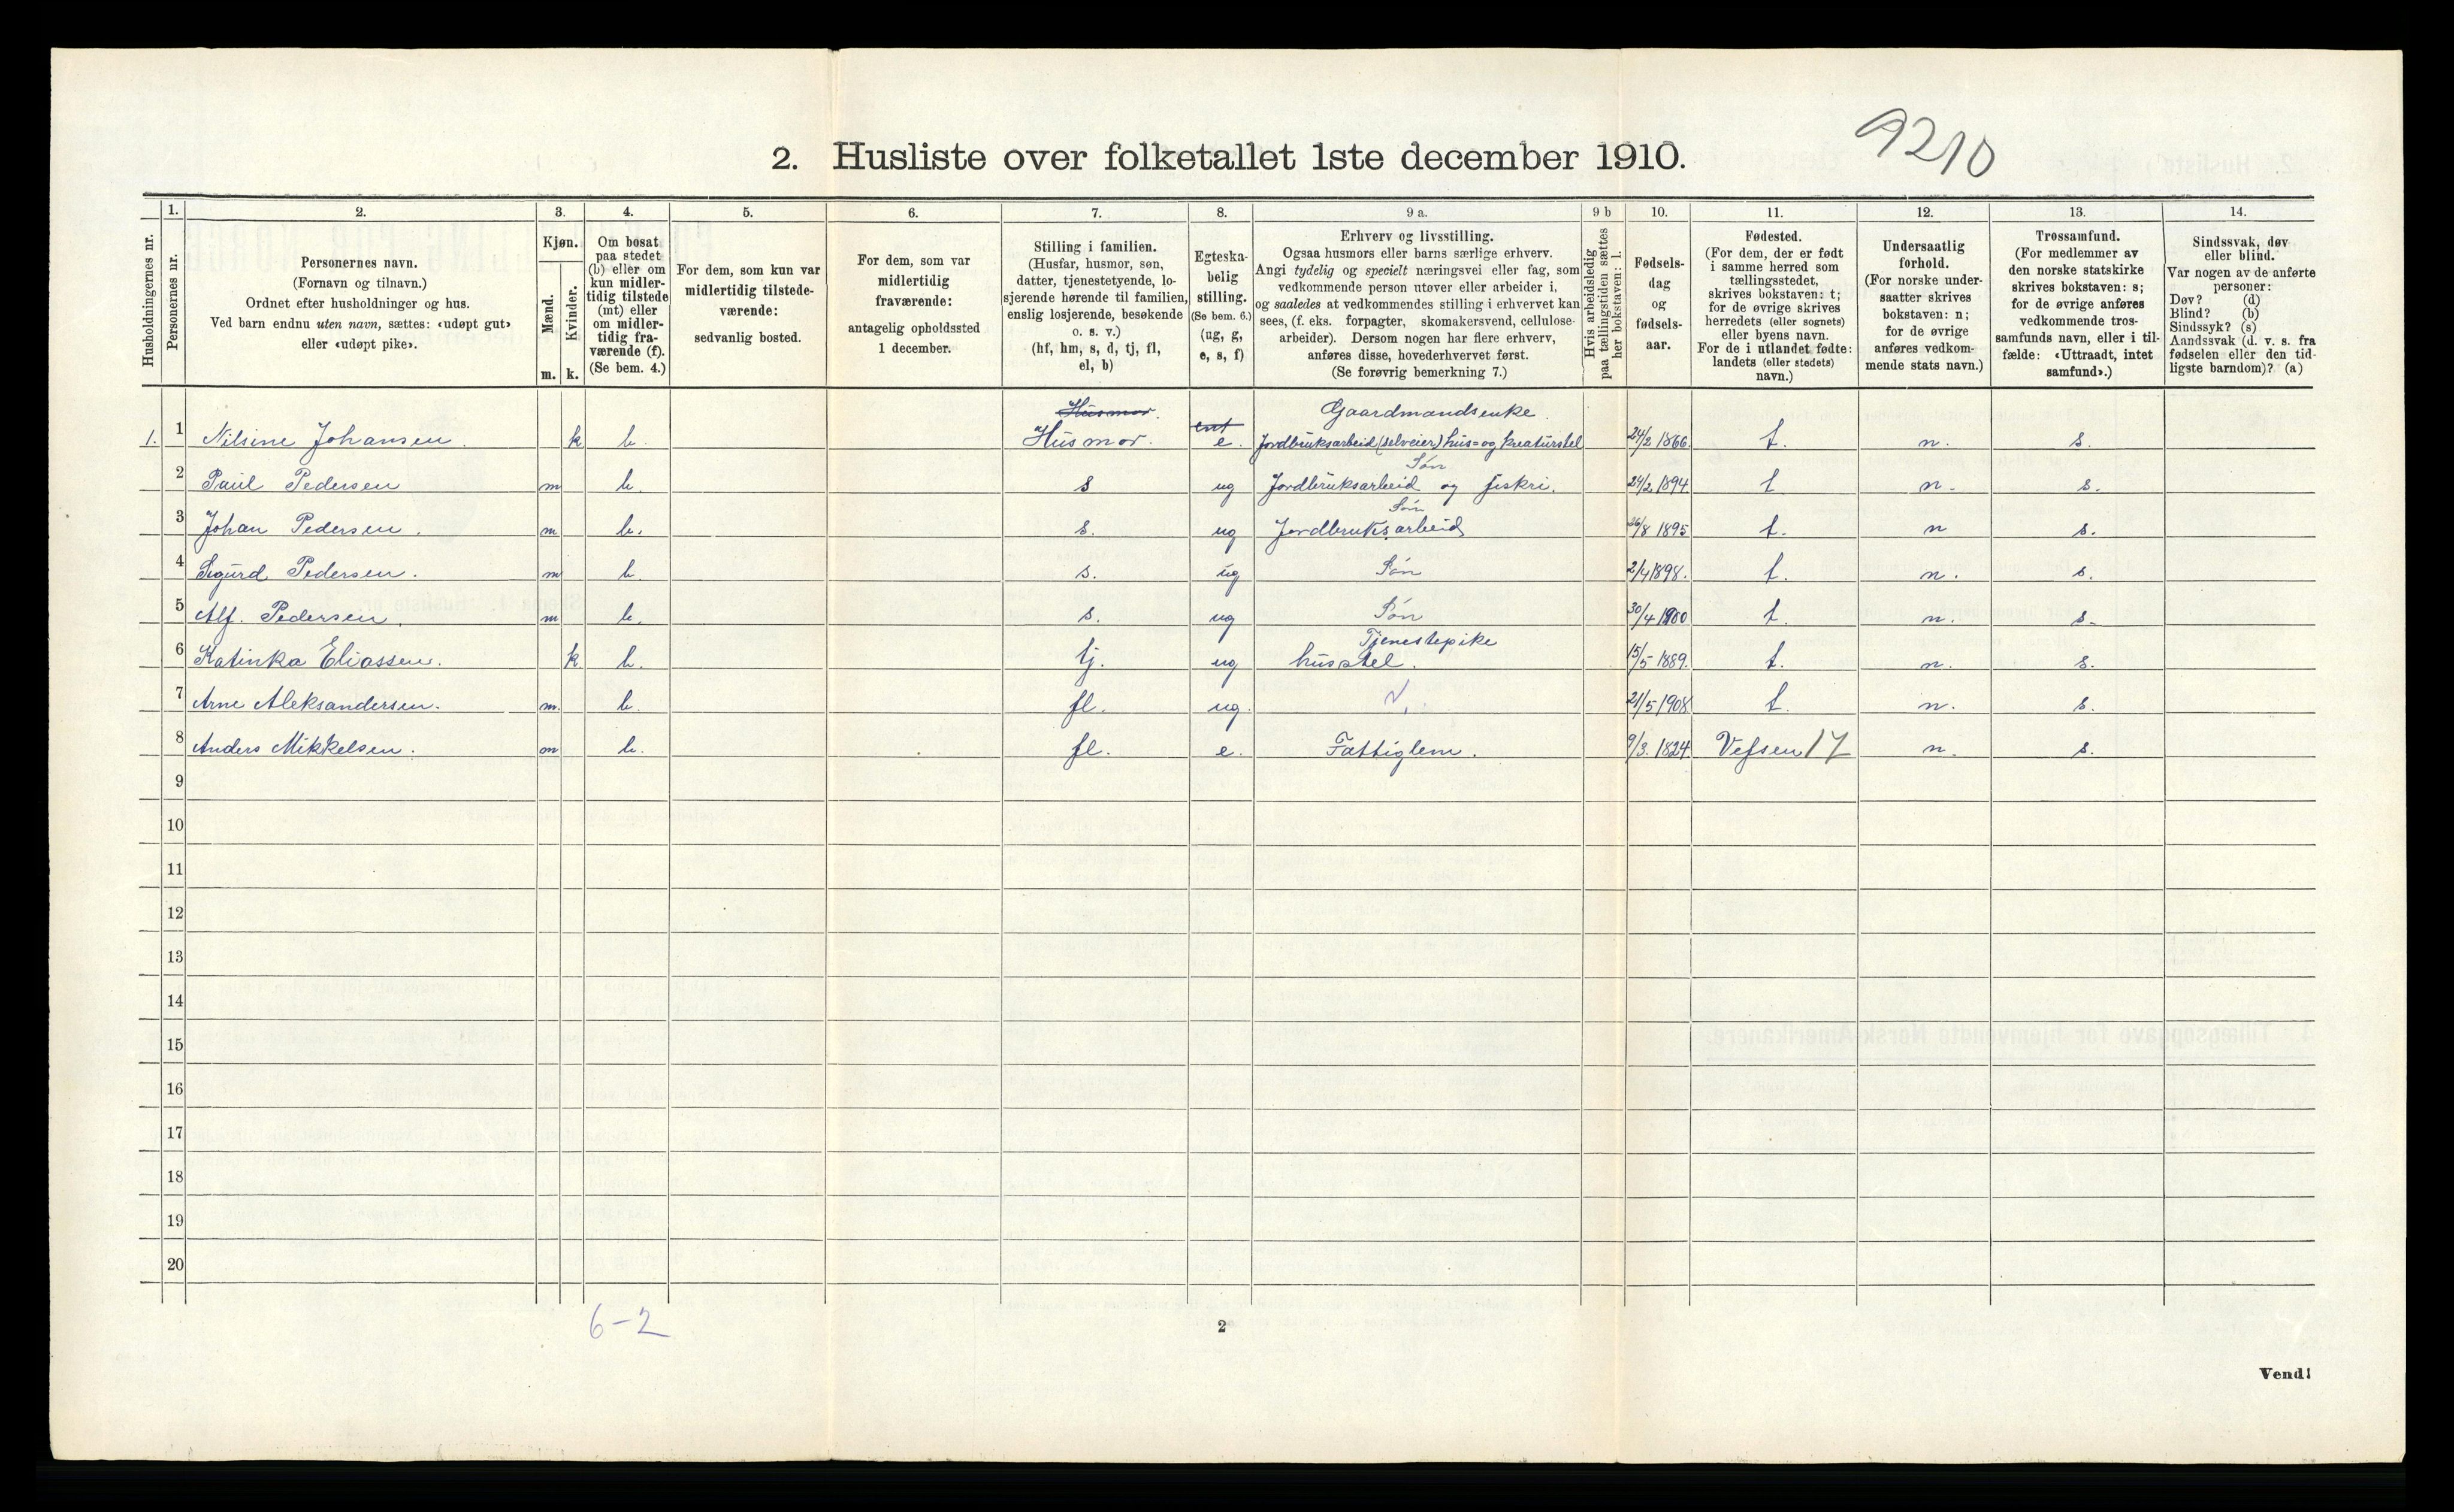 9210
2. Husliste over folketallet 1ste december 1910.
Husholdningernes nr.
1.
Personernes nr.
2.
Personernes navn.
(Fornavn og tilnavn.)
Ordnet efter husholdninger og hus.
Ved barn endnu uten navn, sættes: «udøpt gut»
eller «udøpt pike».
3.
Kjøn.
Mænd.
Kvinder.
m. k.
4.
Om bosat
paa stedet
(b) eller om
kun midler-
tidig tilstede
(mt) eller
om midler-
tidig fra-
værende (f).
(Se bem. 4.)
5.
For dem, som kun var
midlertidig tilstede-
værende:
sedvanlig bosted.
6.
For dem, som var
midlertidig
fraværende:
antagelig opholdssted
1 december.
7.
Stilling i familien.
(Husfar, husmor, søn,
datter, tjenestetyende, lo-
sjerende hørende til familien,
enslig losjerende, besøkende
o. s. v.)
(hf, hm, s, d, tj, fl,
el, b)
8.
Egteska-
belig
stilling.
(Se bem. 6.)
(ug, g,
e, s, f)
9 a.
Erhverv og livsstilling.
Ogsaa husmors eller barns særlige erhverv.
Angi tydelig og specielt næringsvei eller fag, som
vedkommende person utøver eller arbeider i,
og saaledes at vedkommendes stilling i erhvervet kan
sees, (f. eks. forpagter, skomakersvend, cellulose-
arbeider). Dersom nogen har flere erhverv,
anføres disse, hovederhvervet først.
(Se forøvrig bemerkning 7.)
9 b
Hvis arbeidsledig
paa tællingstiden sættes
her bokstaven: l.
10.
Fødsels-
dag
og
fødsels-
aar.
11.
Fødested.
(For dem, der er født
i samme herred som
tællingsstedet,
skrives bokstaven: t;
for de øvrige skrives
herredets (eller sognets)
eller byens navn.
For de i utlandet fødte:
landets (eller stedets)
navn.)
12.
Undersaatlig
forhold.
(For norske under-
saatter skrives
bokstaven: n;
for de øvrige
anføres vedkom-
mende stats navn.)
13.
Trossamfund.
(For medlemmer av
den norske statskirke
skrives bokstaven: s;
for de øvrige anføres
vedkommende tros-
samfunds navn, eller i til-
fælde: «Uttraadt, intet
samfund».)
14.
Sindssvak, døv
eller blind.
Var nogen av de anførte
personer:
Døv? (d)
Blind? (b)
Sindssyk? (s)
Aandssvak (d. v. s. fra
fødselen eller den tid-
ligste barndom)? (a)
Husmor. ent Gaardmandsenke
1. 1 Nilsine Johansen. k b. Husmor. e. Jordbruksarbeid (selveier) hus- og kreaturstel 24/2 1866 t. n. s.
Søn
2 Paul Pedersen m b. s ug Jordbruksarbeid og fiskri. 24/2 1894 t n. s.
Søn
3 Johan Pedersen. m b. s. ug Jordbruksarbeid 26/8 1895 t. n s.
4 Sigurd Pedersen. m b. s. ug Søn 2/4 1898. t. n. s.
5 Alf. Pedersen. m b. s. ug Søn 30/4 1900 t. n. s.
Tjenestepike
6 Katinka Eliassen. k b. tj. ug husstel. 15/5 1889. t. n. s.
7 Arne Aleksandersen. m. b. fl. ug. 21/5 1908 t. n. s.
8 Anders Mikkelsen. m b. fl. e. Fattiglem. 9/3. 1824 Vefsen 17 n. s.
9
10
11
12
13
14
15
16
17
18
19
20
6-2
2
Vend!